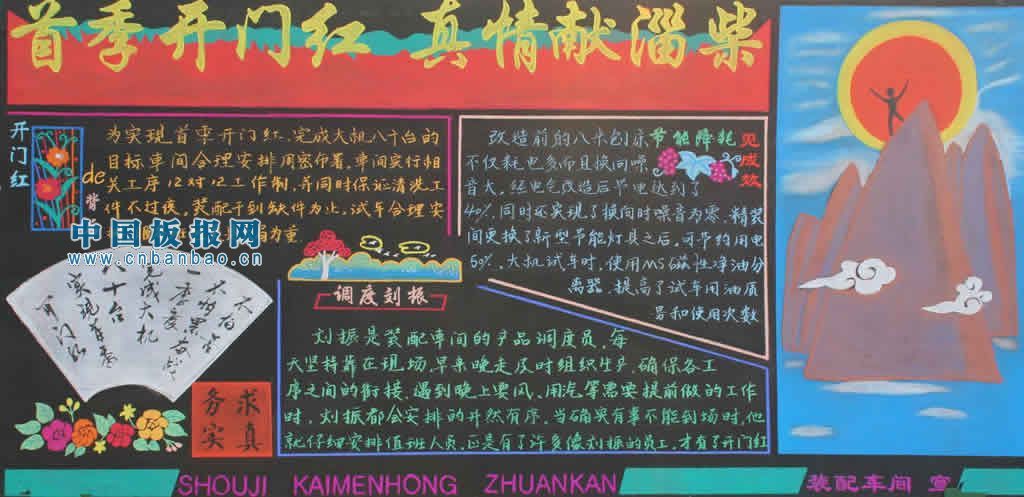 首季开门红 真情献淄柴
开门红
de
背
为实现首季开门红、完成大机八十台的
目标车间合理安排周密布署,车间实行相
关工序12对12工作制,并同时保证清洗工
件不过夜,装配干到缺件为止,试车合理安
为重.
中国板报网
www.cnbanbao.cn
改造前的八米刨床
节能降耗
见成效
不仅耗电多而且换向噪
音大,经电气改造后节电达到了
40%.同时还实现了换向时噪音为零.精装
间更换了新型节能灯具之后,可节约用电
60%.大机试车时,使用MS磁性净油分
离器,提高了试车用油质
量和使用次数
不怕苦
不怕累
一季度奋战
完成大机
八十台
实现首季
开门红
求真
务实
调度刘振
刘振是装配车间的产品调度员,每
天坚持靠在现场,早来晚走及时组织生产,确保各工
序之间的衔接.遇到晚上要风、用汽等需要提前做的工作
时,刘振都会安排的井然有序.当确实有事不能到场时,他
就仔细安排值班人员.正是有了许多像刘振的员工,才有了开门红
SHOUJI KAIMENHONG ZHUANKAN
装配车间 宣